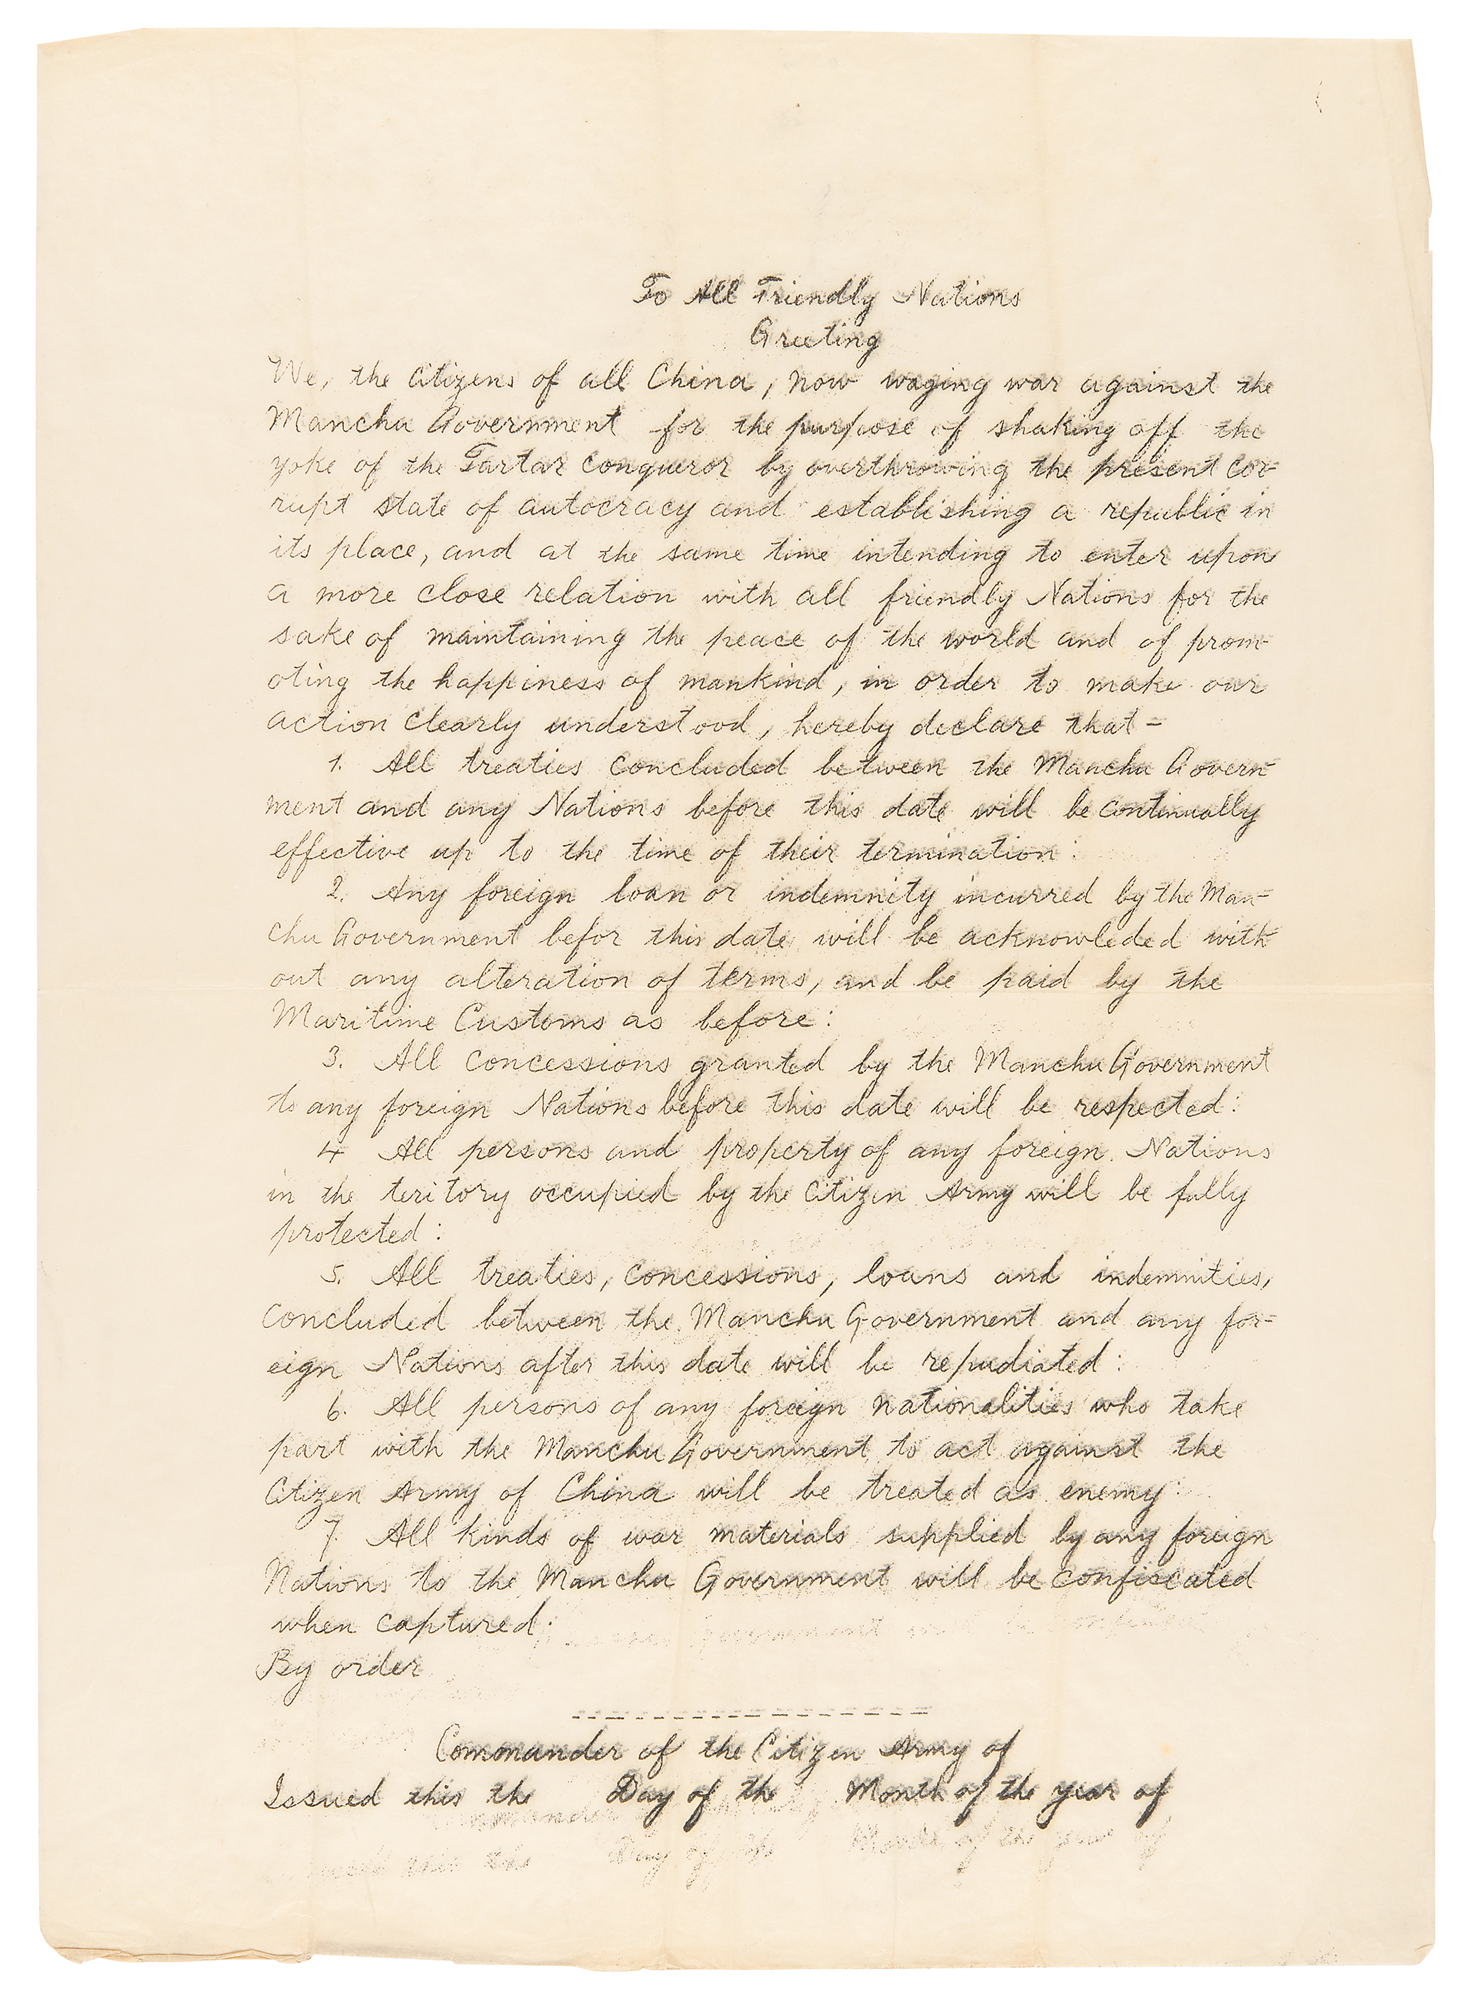 To All Friendly Nations
Greeting
We, the Citizens of all China, now waging war against the
Manchu Government for the purpose of shaking off the
yoke of the Tartar Conqueror by overthrowing the present cor=
rupt state of autocracy and establishing a republic in
its place, and at the same time intending to enter upon
a more close relation with all friendly Nations for the
sake of maintaining the peace of the world and of prom=
oting the happiness of mankind, in order to make our
action clearly understood, hereby declare that=
1. All treaties concluded between the Manchu Govern=
ment and any Nations before this date will be continually
effective up to the time of their termination:
2. Any foreign loan or indemnity incurred by the Man=
chu Government befor this date will be acknowleded with=
out any alteration of terms, and be paid by the
Maritime Customs as before:
3. All concessions granted by the Manchu Government
to any foreign Nations before this date will be respected:
4 All persons and property of any foreign Nations
in the teritory occupied by the Citizen Army will be fully
protected:
5. All treaties, concessions, loans and indemnities,
concluded between the Manchu Government and any for=
eign Nations after this date will be repudiated:
6. All persons of any foreign nationalities who take
part with the Manchu Government to act against the
Citizen Army of China will be treated as enemy:
7. All kinds of war materials supplied by any foreign
Nations to the Manchu Government will be confiscated
when captured:
By order
Commander of the Citizen Army of
Issued this the Day of the Month of the year of